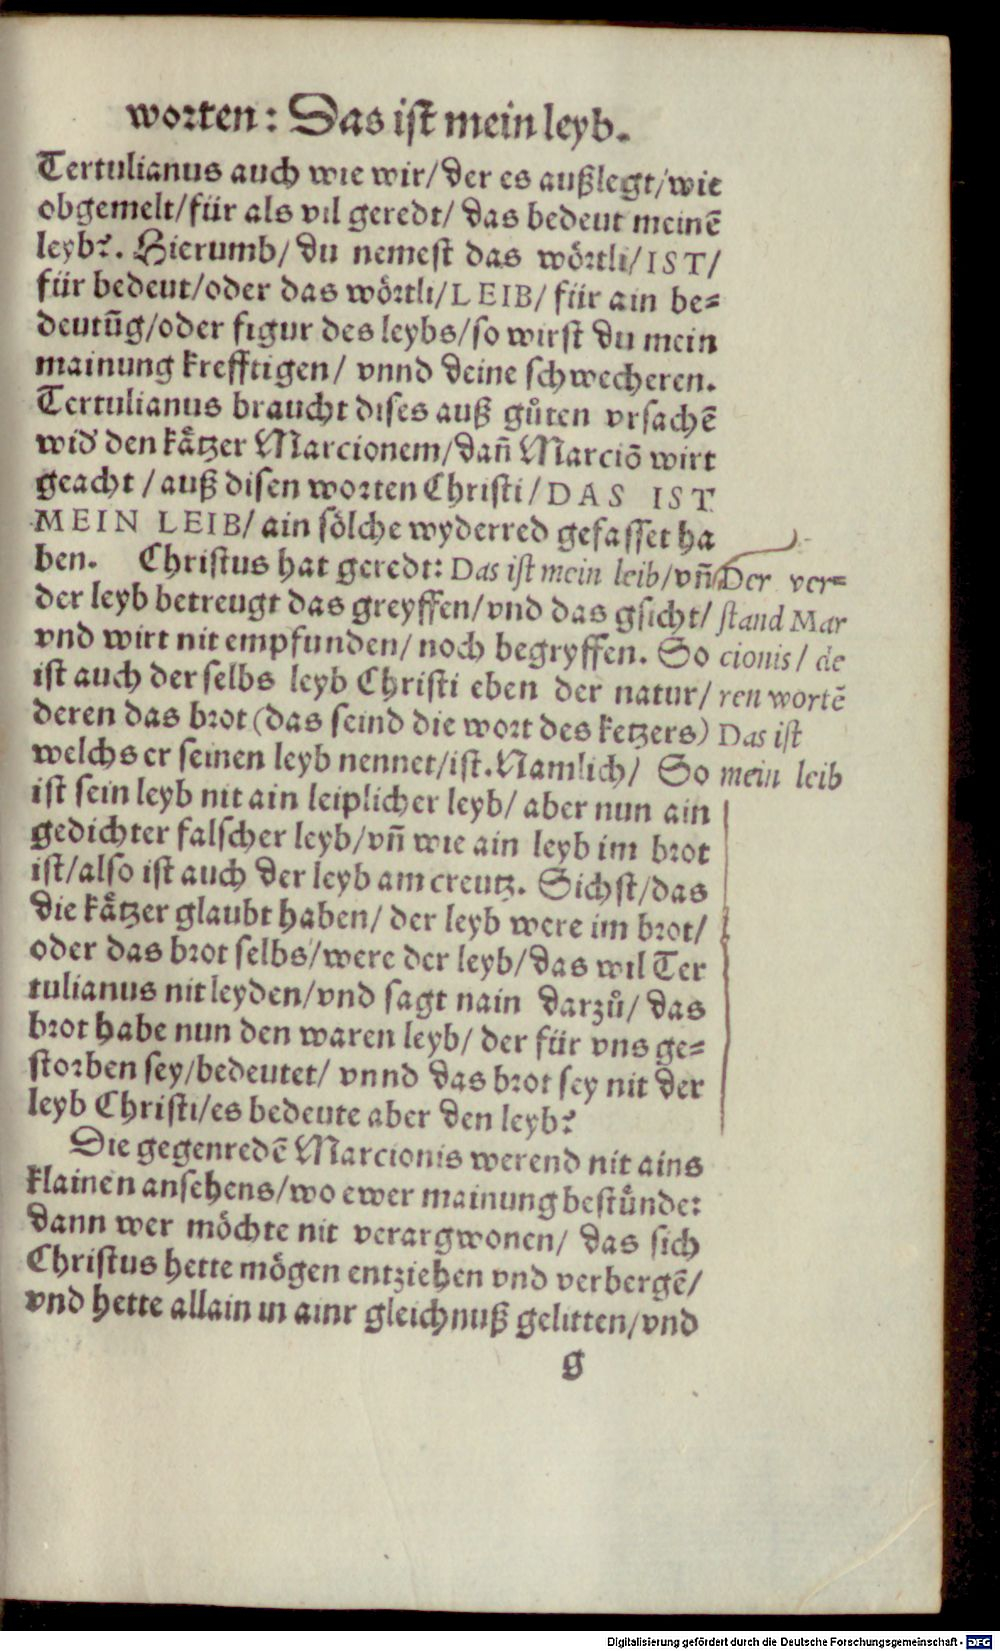 worten: Das ist mein leyb.
Tertulianus auch wie wir/ der es außlegt/ wie
obgemelt/ für als vil geredt/ das bedeut meinē
leyb?. Hierumb/ du nemest das wörtli/ IST/
für bedeut/ oder das wörtli/ LEIB/ für ain be=
deutūg/ oder figur des leybs/ so wirst du mein
mainung krefftigen/ vnnd deine schwecheren.
Tertulianus braucht dises auß gůten vrsachē
wid' den kåtzer Marcionem/ dañ Marciō wirt
geacht / auß disen worten Christi/ DAS IST
MEIN LEIB/ ain sölche wyderred gefasset ha
ben. Christus hat geredt: Das ist mein leib/ vñ
der leyb betreugt das greyffen/ vnd das gsicht/
vnd wirt nit empfunden/ noch begryffen. So
ist auch der selbs leyb Christi eben der natur/
deren das brot (das seind die wort des ketzers)
welchs er seinen leyb nennet/ ist. Namlich/ So
ist sein leyb nit ain leiplicher leyb/ aber nun ain
gedichter falscher leyb/ vñ wie ain leyb im brot
ist/ also ist auch der leyb am creutz. Sichst/ das
die kåtzer glaubt haben/ der leyb were im brot/
oder das brot selbs/ were der leyb/ das wil Ter
tulianus nit leyden/ vnd sagt nain darzů/ das
brot habe nun den waren leyb/ der für vns ge=
storben sey/ bedeutet/ vnnd das brot sey nit der
leyb Christi/ es bedeute aber den leyb?
Die gegenredē Marcionis werend nit ains
klainen ansehens/ wo ewer mainung bestünde:
dann wer möchte nit verargwonen/ das sich
Christus hette mögen entziehen vnd verbergē/
vnd hette allain in ainr gleichnuß gelitten/ vnd
g
Der ver=
stand Mar
cionis/ de
ren wortē
Das ist
mein leib
Digitalisierung gefördert durch die Deutsche Forschungsgemeinschaft - DFG